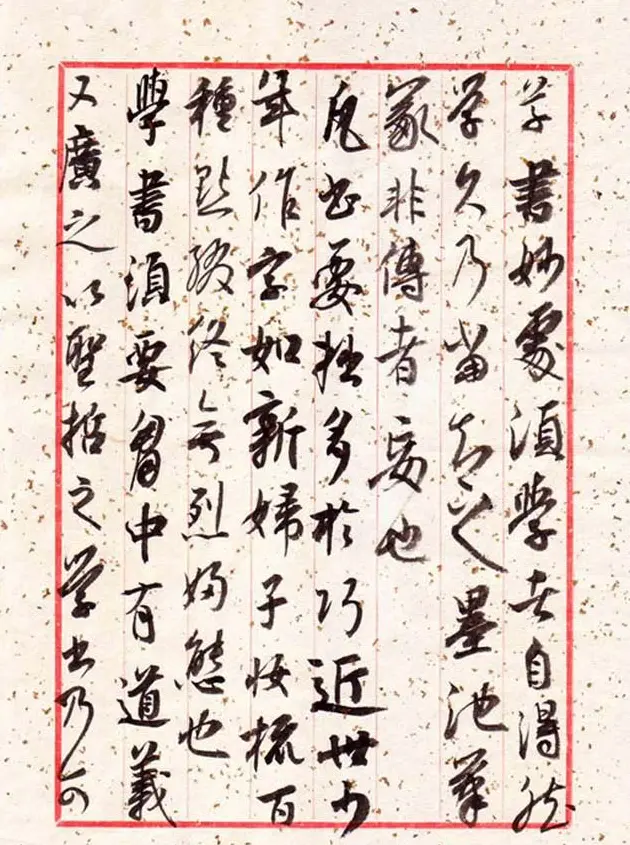 草書妙處須學者自得然
學久乃當知之墨池筆
冢非傳者妄也
凡書要拙多於巧近世少
年作字如新婦子妝梳百
種點綴終無烈婦態也
學書須要胷中有道義
又廣之以聖哲之学書乃可